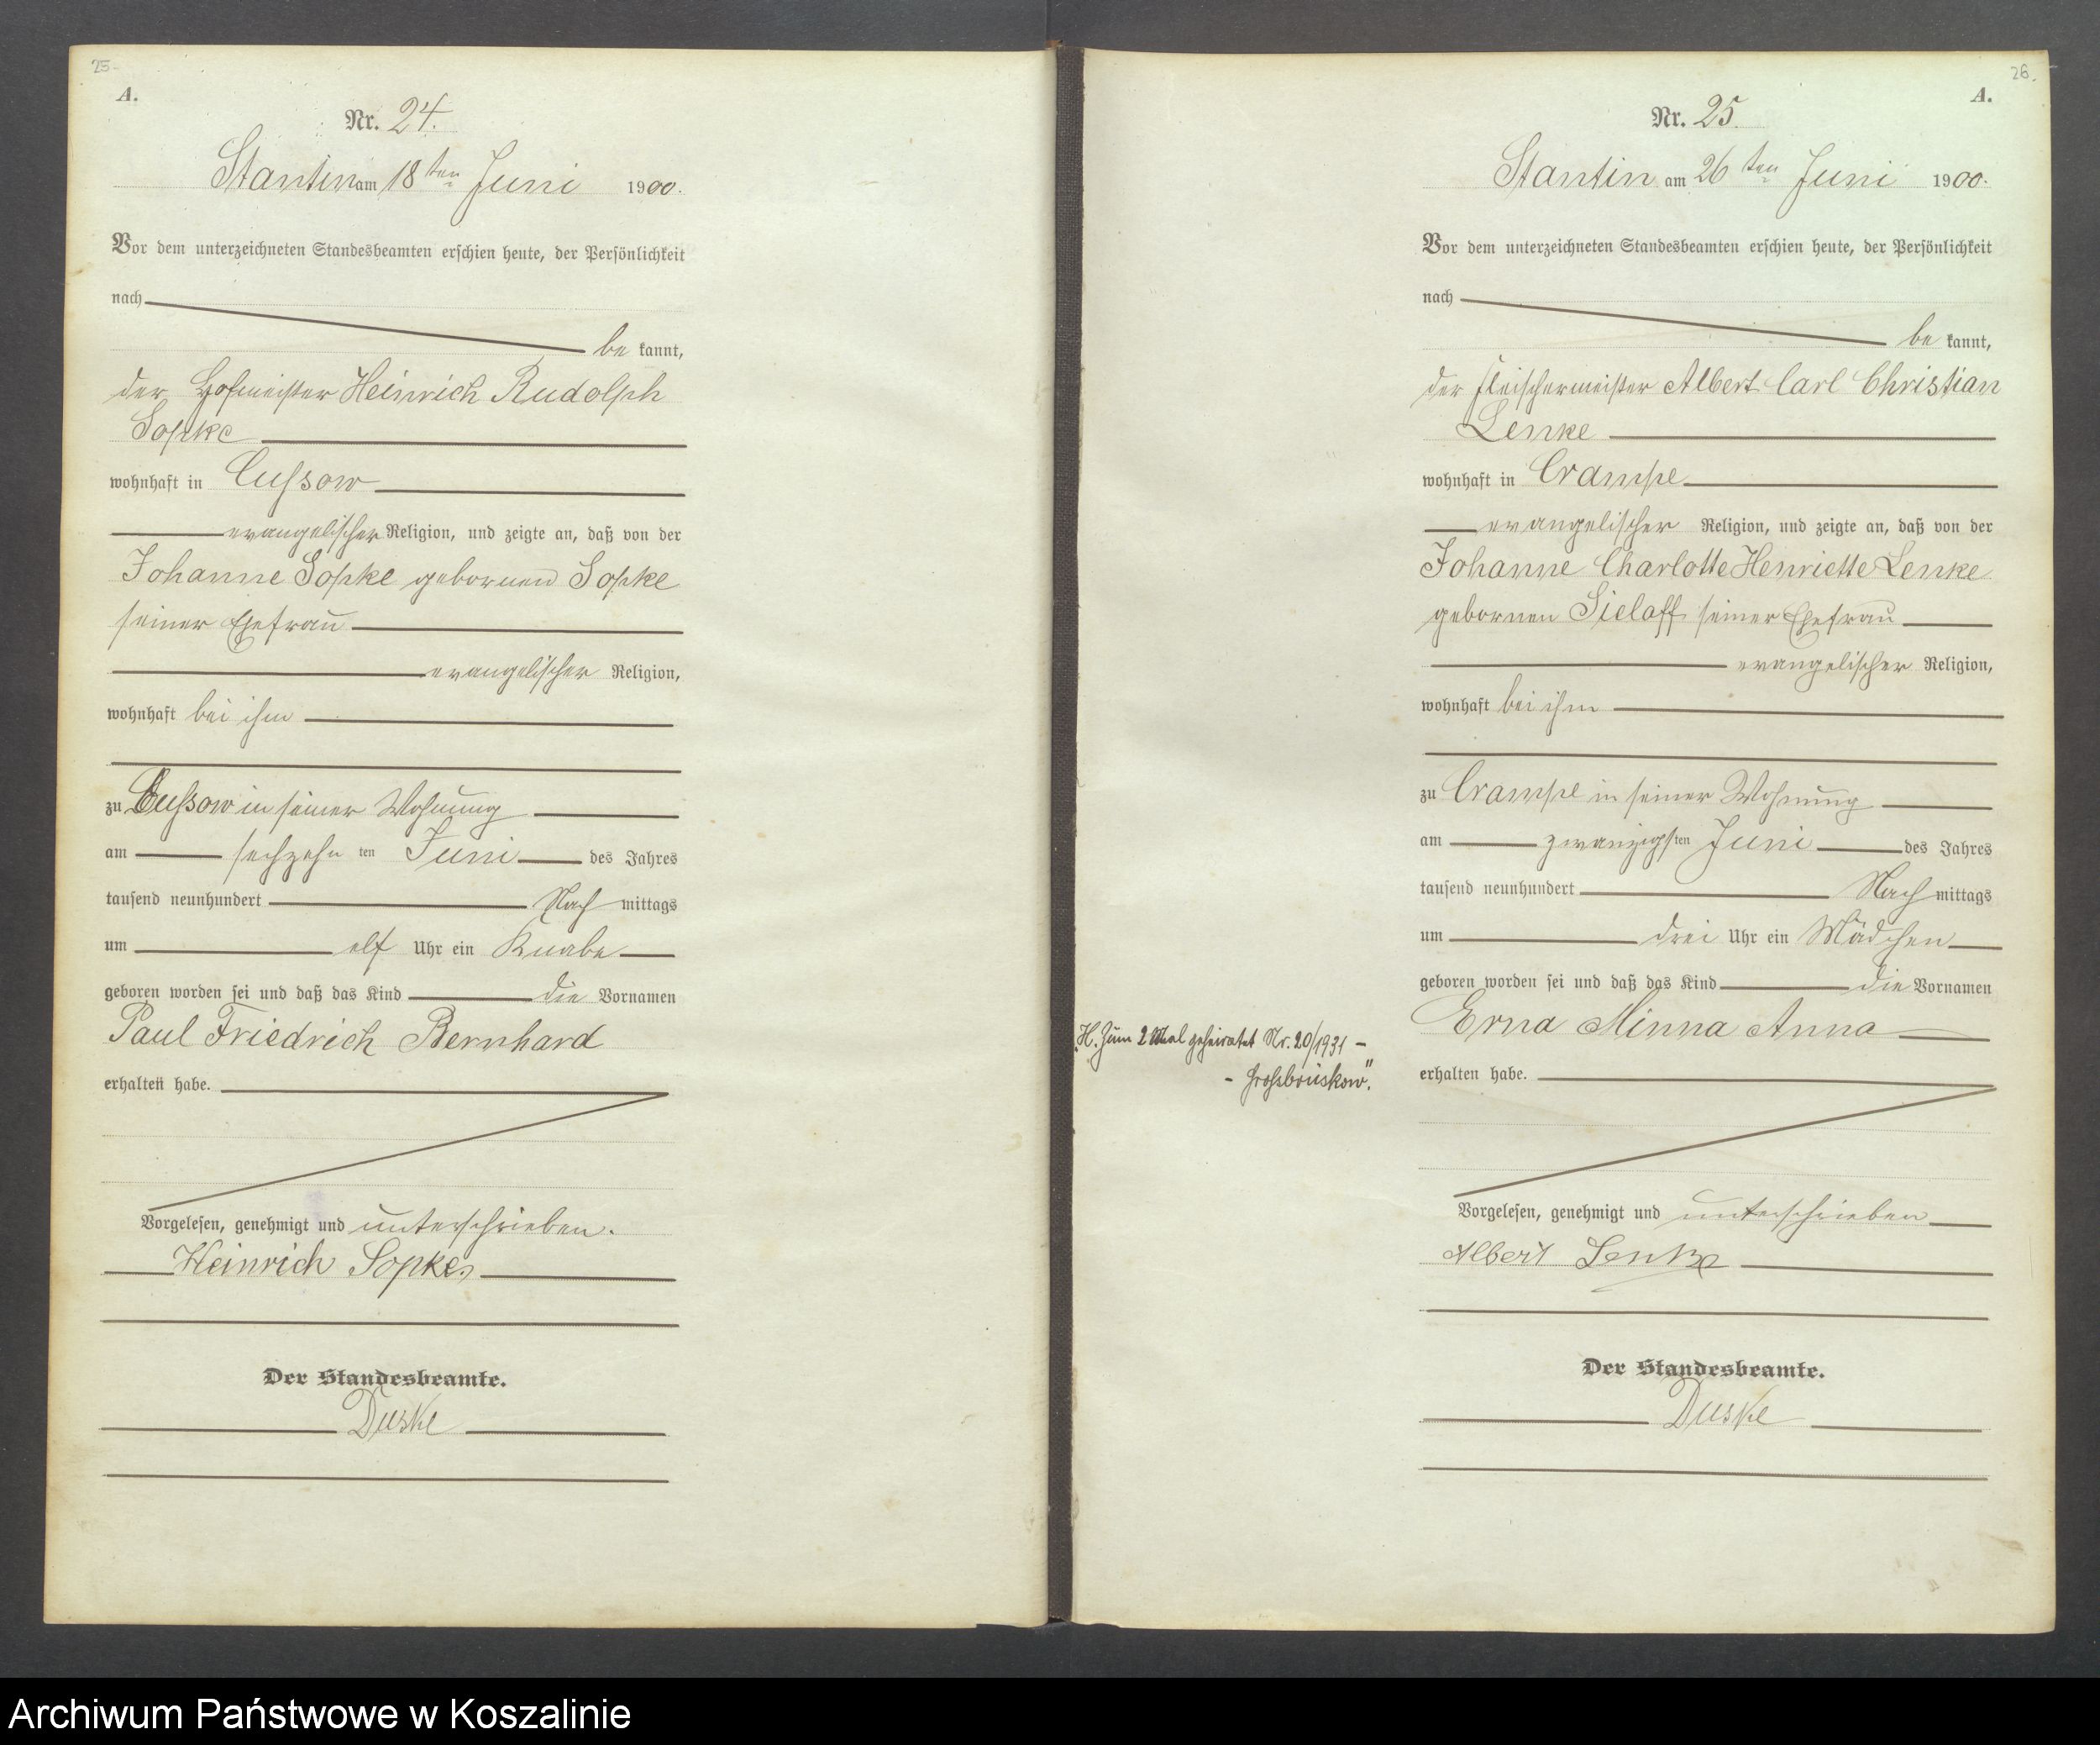 25.
A.
Nr. 24.
Stantin am 18ten Juni 1900.
Vor dem unterzeichneten Standesbeamten erschien heute, der Persönlichkeit
nach
be kannt,
der Hofmeister Heinrich Rudolph
Sopke
wohnhaft in Cussow
evangelischer Religion, und zeigte an, daß von der
Johanne Sopke gebornen Sopke
seiner Ehefrau
evangelischer Religion,
wohnhaft bei ihm
zu Cussow in seiner Wohnung
am sechzehn ten Juni des Jahres
tausend neunhundert Nach mittags
um elf Uhr ein Knabe
geboren worden sei und daß das Kind die Vornamen
Paul Friedrich Bernhard
erhalten habe.
Vorgelesen, genehmigt und unterschrieben.
Heinrich Sopke
Der Standesbeamte.
Duske
26.
A.
Nr. 25.
Stantin am 26ten Juni 1900.
Vor dem unterzeichneten Standesbeamten erschien heute, der Persönlichkeit
nach
be kannt,
der Fleischermeister Albert Carl Christian
Lenke
wohnhaft in Crampe
evangelischer Religion, und zeigte an, daß von der
Johanne Charlotte Henriette Lenke
gebornen Sielaff seiner Ehefrau
evangelischer Religion,
wohnhaft bei ihm
zu Crampe in seiner Wohnung
am zwanzigsten Juni des Jahres
tausend neunhundert Nach mittags
um drei Uhr ein Mädchen
geboren worden sei und daß das Kind die Vornamen
Erna Minna Anna
erhalten habe.
„H. Zum 2 Mal geheiratet Nr. 20/1931 –
– Grossbrüskow".
Vorgelesen, genehmigt und unterschrieben
Albert Lenke
Der Standesbeamte.
Duske
Archiwum Państwowe w Koszalinie